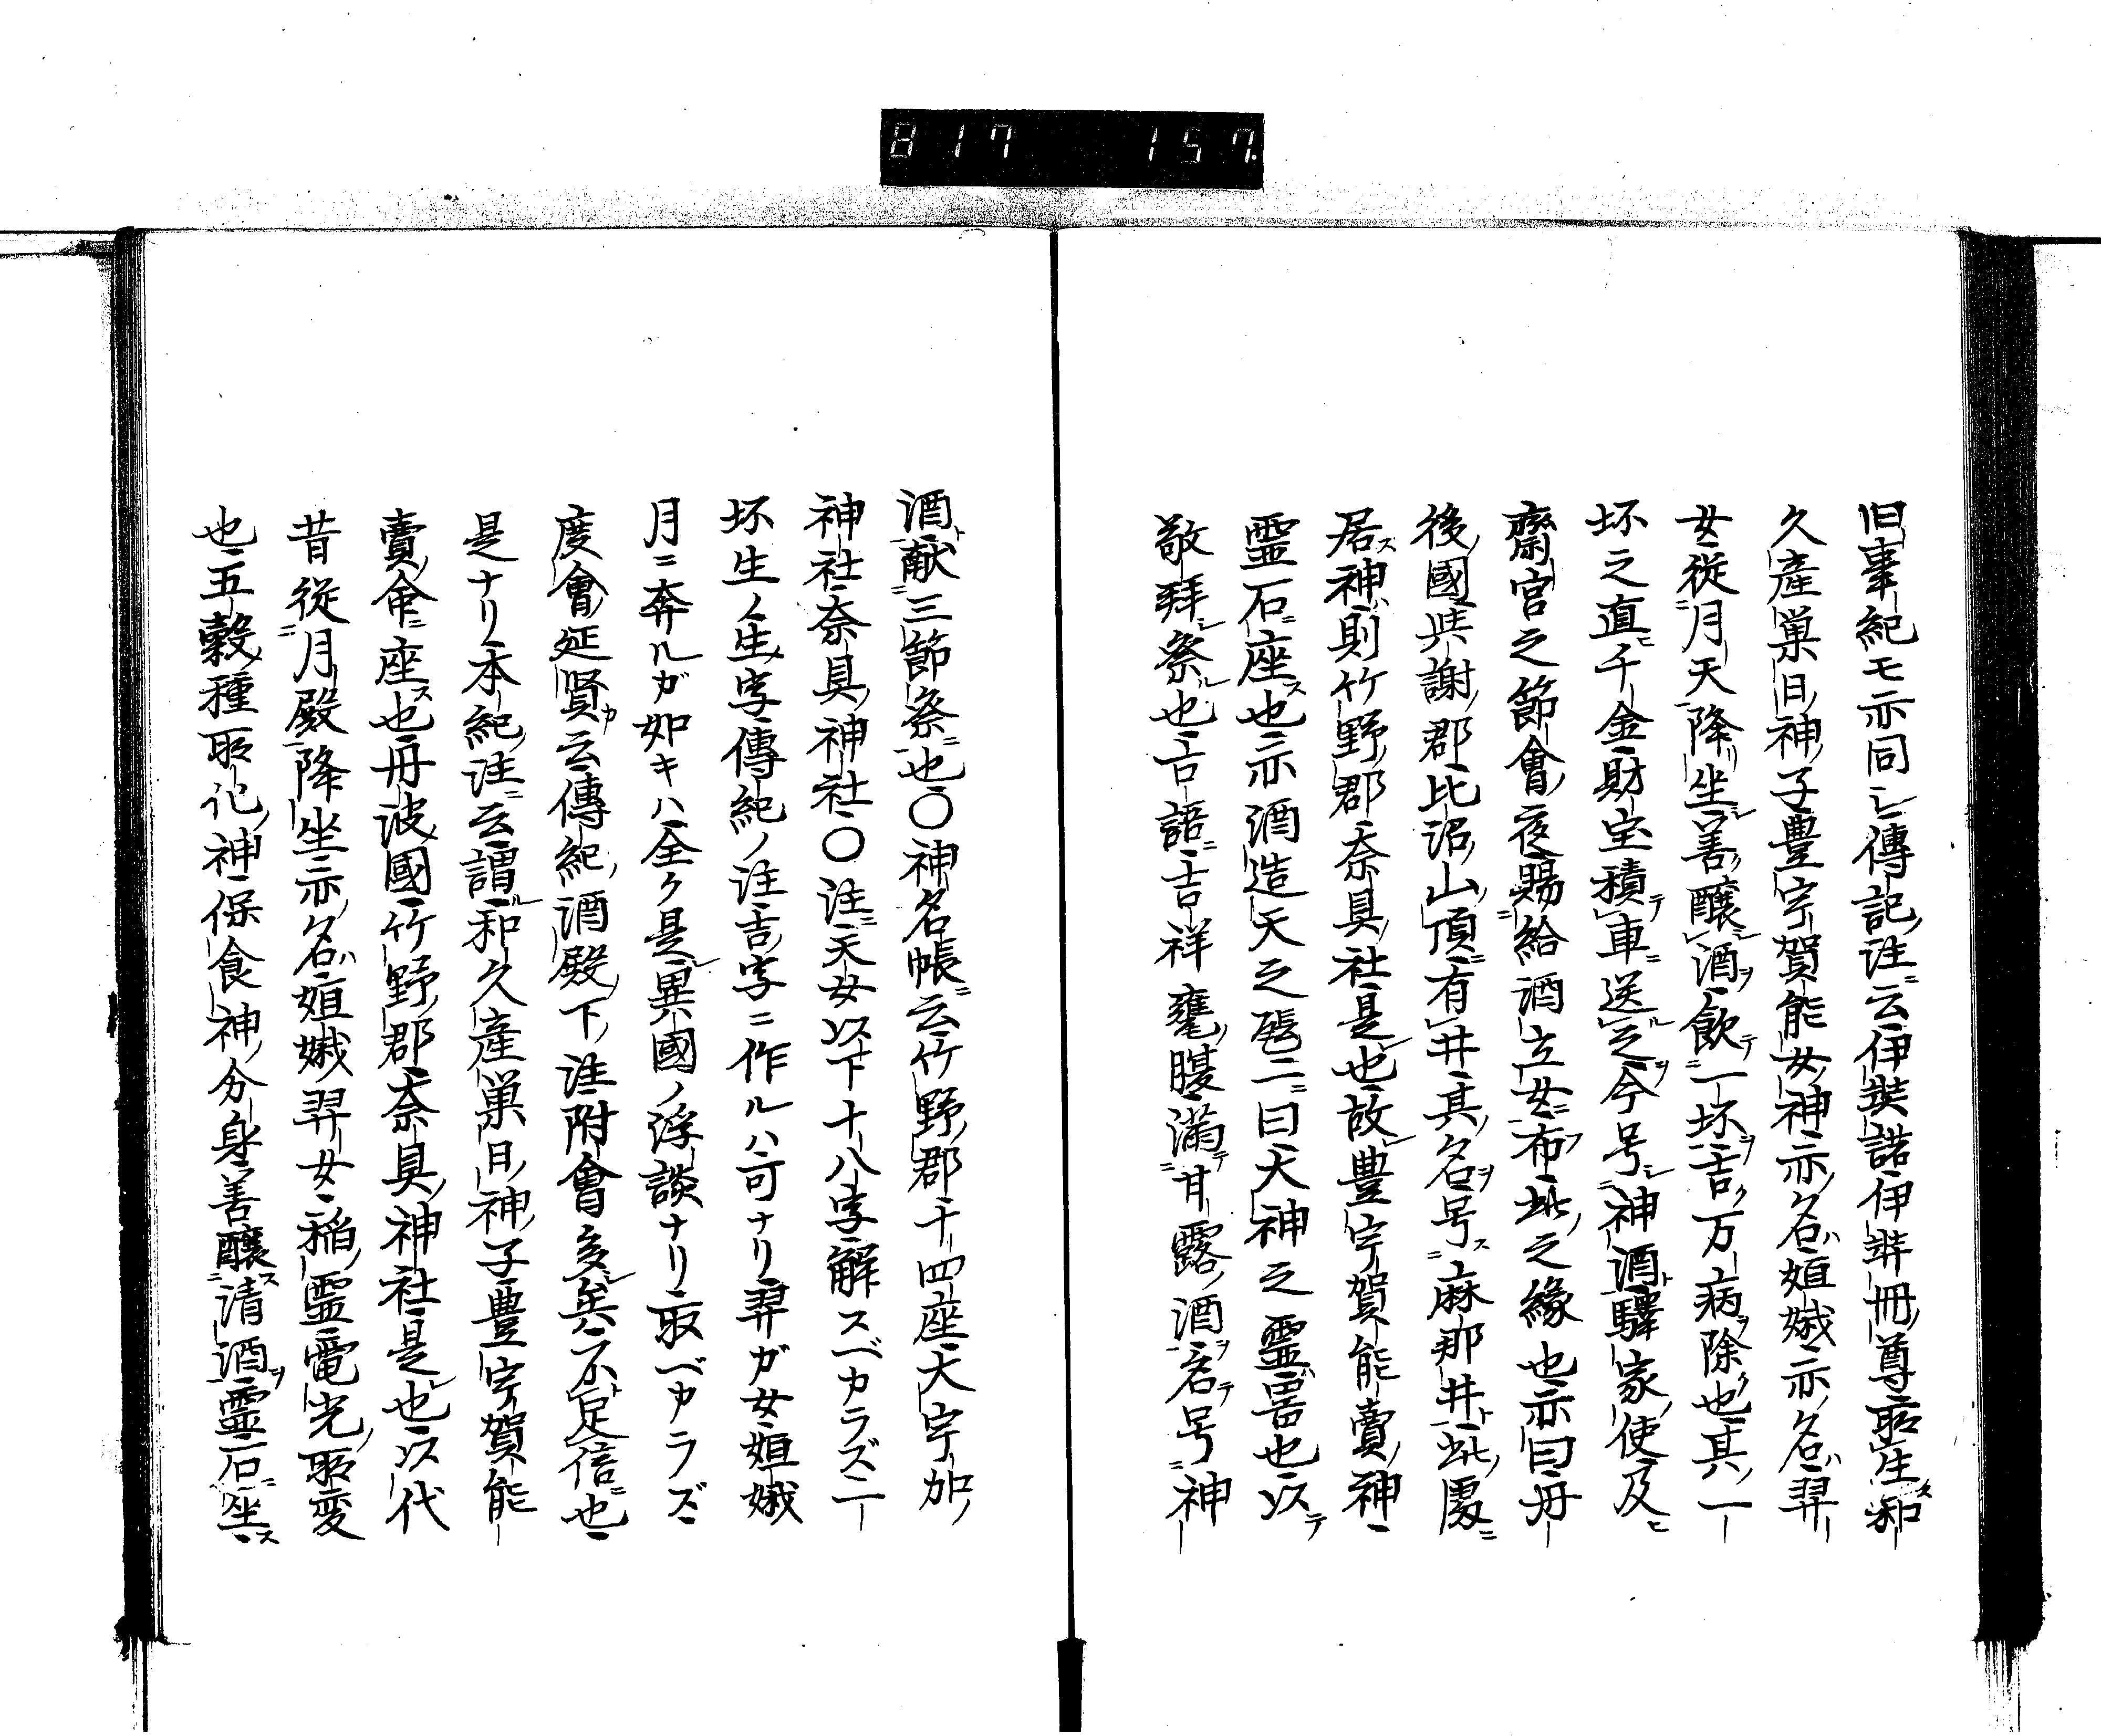 817 157
旧事紀モ亦同シ傳記ノ注ニ云伊奘諾伊弉冊ノ尊所産ス和
久産巣日ノ神ノ子豊宇賀能女ノ神亦ノ名ハ姮娥亦ノ名ハ羿
女従月天降坐シ善ク醸酒ヲ飲テ一坏ヲ吉ク万ノ病ヲ除ク也其ノ一
坏之直ヒ千金財宝積テ車ニ送ル之ヲ今号シ神酒ト驛家ノ使及ヒ
齋宮之節會ノ夜賜給酒立女ニ布フ此ノ之縁也亦曰丹
後ノ國与謝ノ郡比沼ノ山ノ頂ニ有井其ノ名ヲ号ス麻那井ト此ノ處ニ
居ス神ハ則竹野ノ郡奈具ノ社是也故レ豊宇賀能賣ノ神
霊石ニ座ス也亦酒造天之𤭖二曰大神之霊器也以テ
敬拜シ祭ル也古語ニ吉祥甕ノ腹ニ満テ甘露ノ酒ヲ名テ号神
酒ト献三節祭ニ也〇神名帳ニ云竹野ノ郡十四座大宇加ノ
神社奈具ノ神社〇注ニ天女以下十八字解スベカラズ一
坏生ノ生ノ字傳紀ノ注吉ノ字ニ作ルハ可ナリ羿ガ女姮娥
月ニ奔ルガ如キハ全ク是レ異國ノ浮談ナリ取ベカラズ
度會延賢カ云傳紀ノ酒殿ノ下ノ注附會多矣不足信ニ也
是ナリ本紀ノ注ニ云謂ル和久産巣日ノ神ノ子豊宇賀能
賣ノ命ニ座ス也丹波國竹野ノ郡奈具ノ神社是也以代
昔従月殿降坐亦ノ名ハ姮娥羿女稲ノ霊電光ノ所変
也五穀ノ種所化ノ神保食神ノ分身善醸ス清酒ヲ霊石ニ坐ス